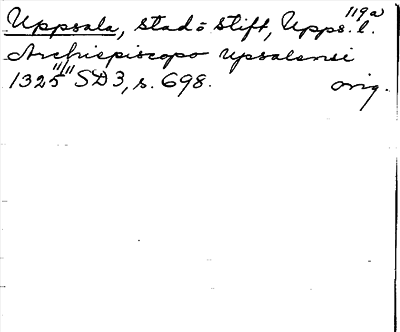 119a
Uppsala, stad o stift, Upps. l.
Archiepiscopo Upsalensi
1325 11/11 SD3, s. 698. orig.